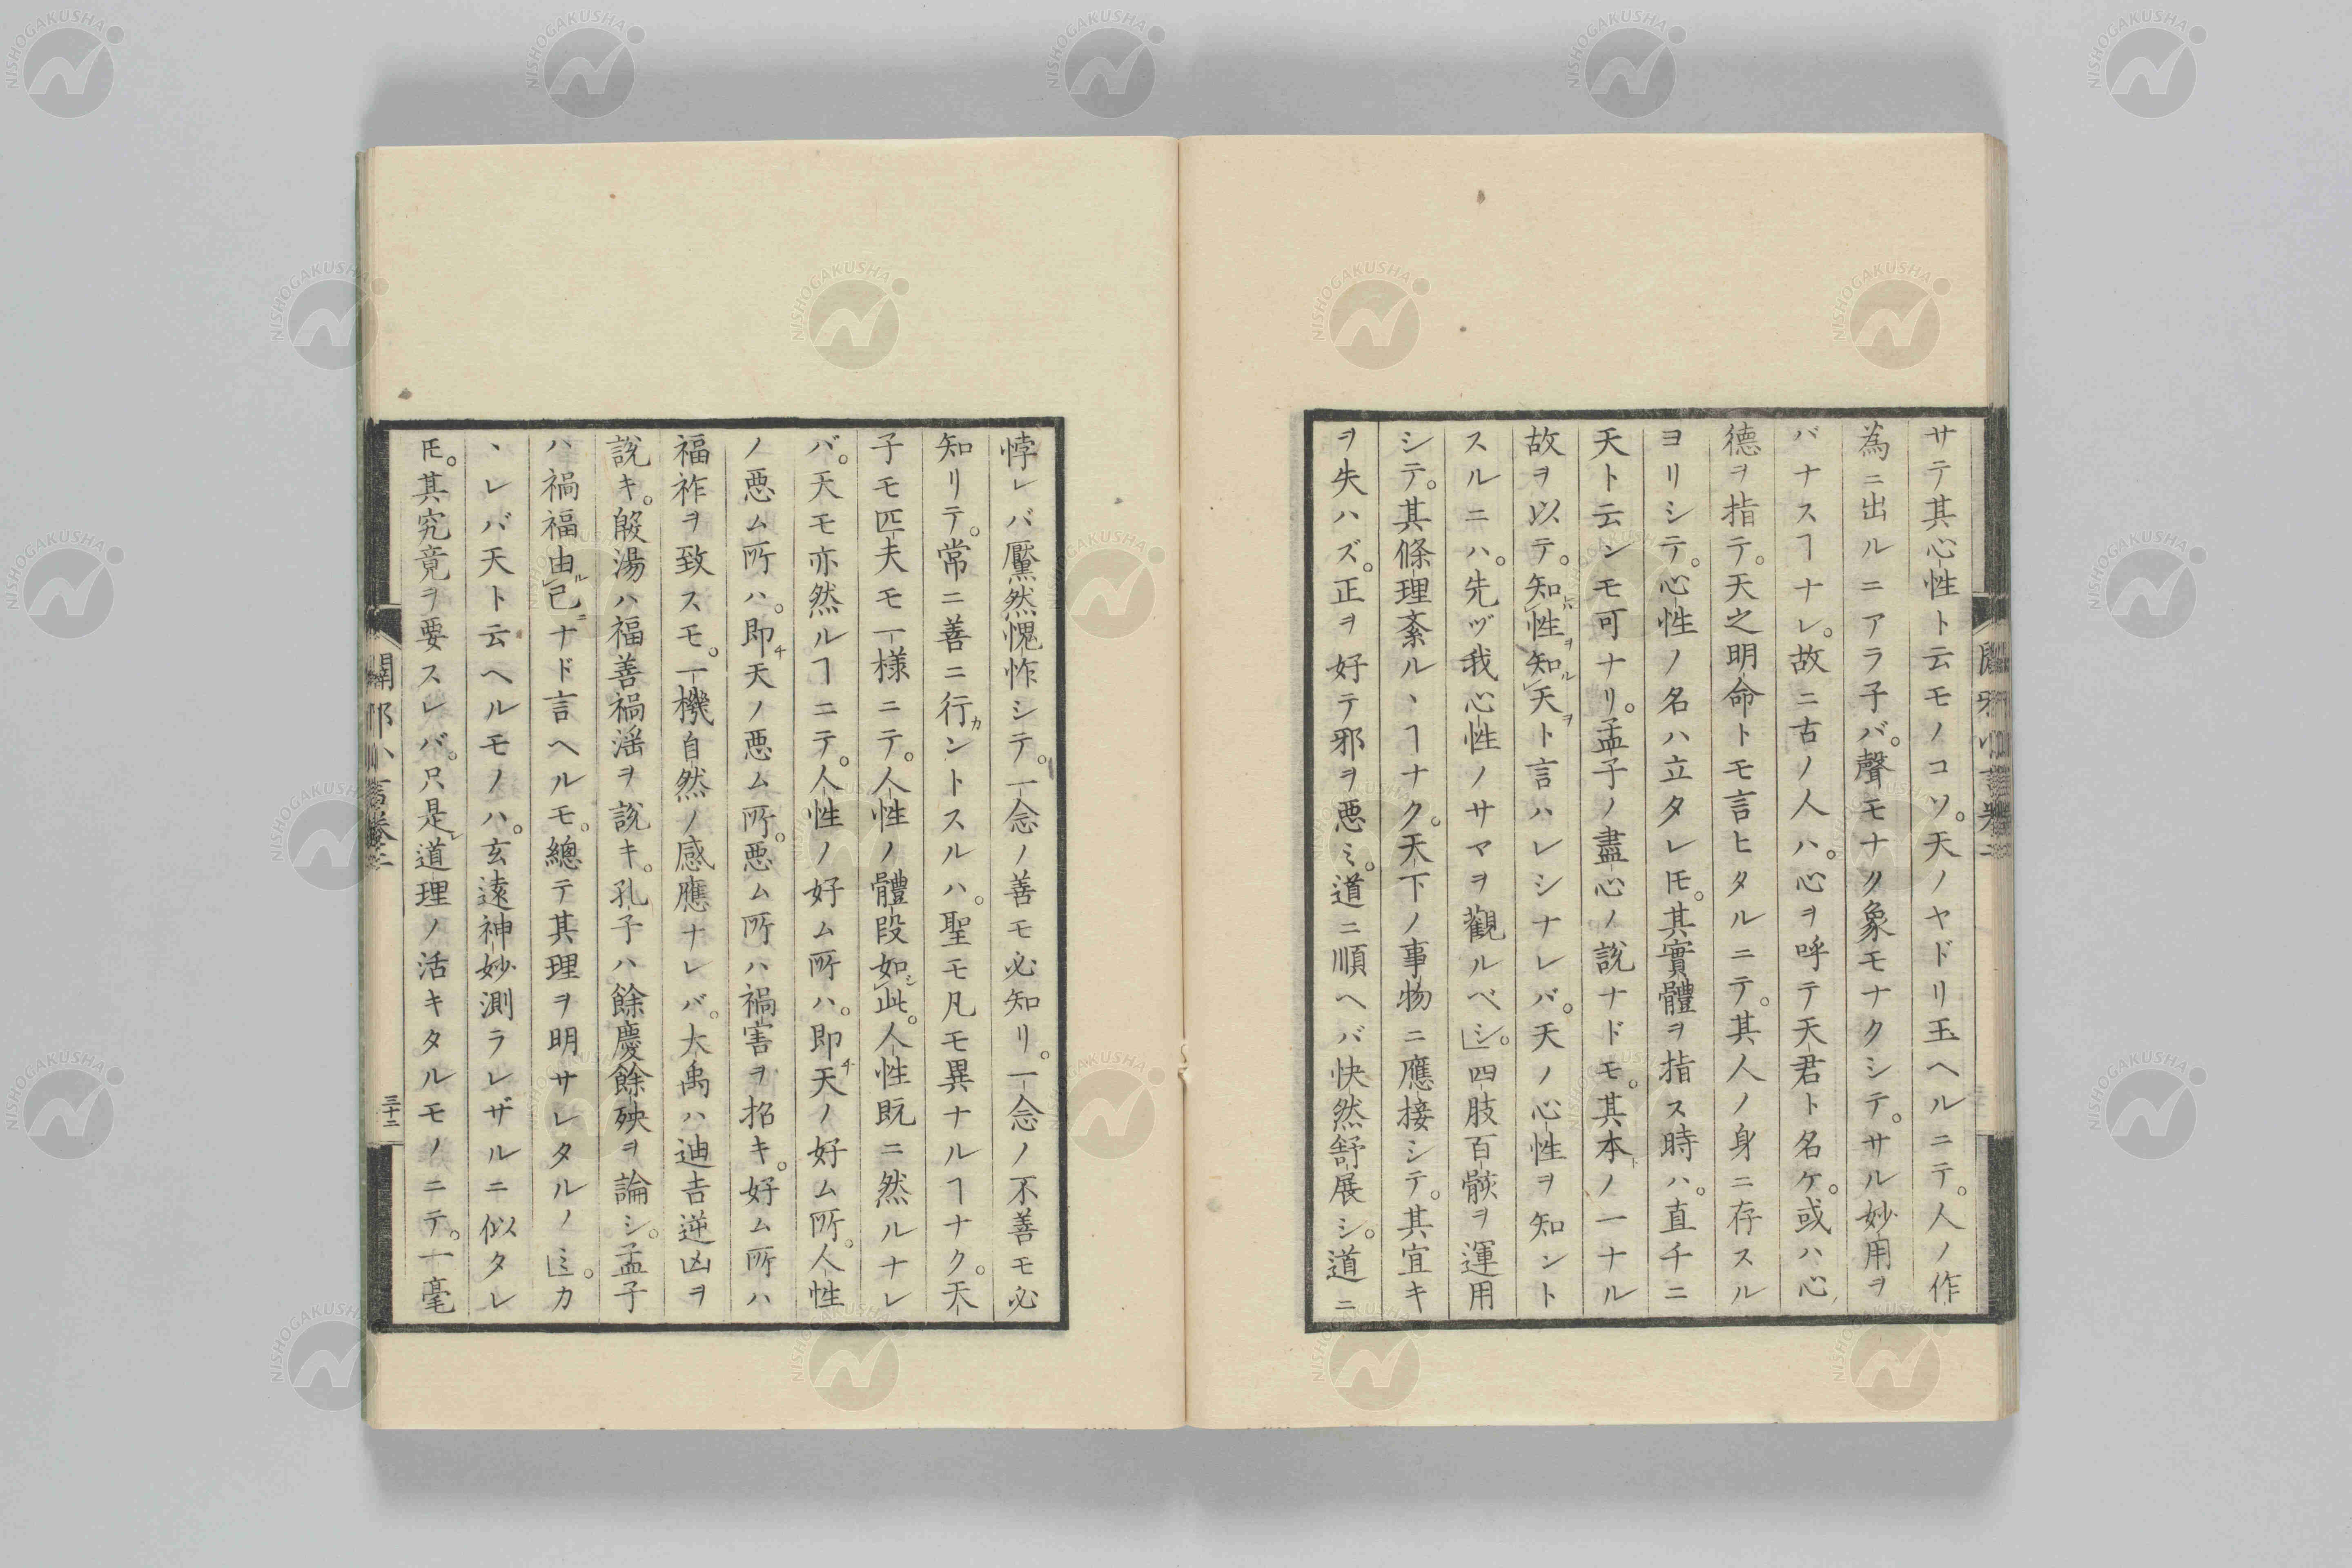 サテ其心性ト云モノコソ。天ノヤドリ玉ヘルニテ。人ノ作
為ニ出ルニアラ子バ。聲モナク象モナクシテ。サル妙用ヲ
バナスヿナレ。故ニ古ノ人ハ。心ヲ呼テ天君ト名ケ。或ハ心
德ヲ指テ。天之明命トモ言ヒタルニテ。其人ノ身ニ存スル
ヨリシテ。心性ノ名ハ立タレ𪜈。其實體ヲ指ス時ハ。直チニ
天ト云シモ可ナリ。孟子ノ盡心ノ說ナドモ。其本ノ一ナル
故ヲ以テ。知性知天ト言ハレシナレバ。天ノ心性ヲ知ント
スルニハ。先ヅ我心性ノサマヲ觀ルベシ。四肢百骸ヲ運用
シテ。其條理紊ルヽヿナク。天下ノ事物ニ應接シテ。其宜キ
ヲ失ハズ。正ヲ好テ邪ヲ悪ミ。道ニ順ヘバ快然舒展シ。道ニ
悖レバ黶然愧怍シテ。一念ノ善モ必知リ。一念ノ不善モ必
知リテ。常ニ善ニ行ントスルハ。聖モ凡モ異ナルヿナク。天
子モ匹夫モ一様ニテ。人性ノ體段如此。人性既ニ然ルナレ
バ。天モ亦然ルヿニテ。人性ノ好ム所ハ。即天ノ好ム所。人性
ノ悪ム所ハ。即天ノ悪ム所。悪ム所ハ禍害ヲ招キ。好ム所ハ
福祚ヲ致スモ。一機自然ノ感應ナレバ。大禹ハ迪吉逆凶ヲ
說キ。殷湯ハ福善禍淫ヲ說キ。孔子ハ餘慶餘殃ヲ論シ。孟子
ハ禍福由己ナド言ヘルモ。總テ其理ヲ明サレタルノミ。カ
ヽレバ天ト云ヘルモノハ。玄遠神妙測ラレザルニ似タレ
𪜈。其究竟ヲ要スレバ。只是道理ノ活キタルモノニテ。一毫
闢邪小言卷二
三十二
NISHOGAKUSHA